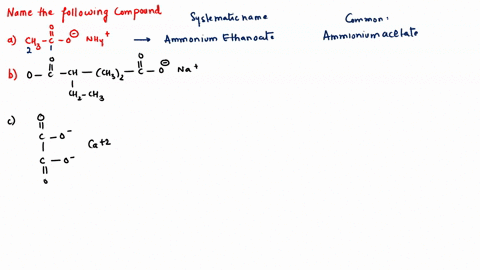 Name the following Compound
Systematic name
Common:
a) CH3 - C - O⊖ NH4+ → Ammonium Ethanoate
Ammionium acetate
2
O
O
O
b) O - C - CH - (CH3)2 - C - O⊖ Na+
CH2 - CH3
c)
O
C - O-
Ca+2
C - O-
O